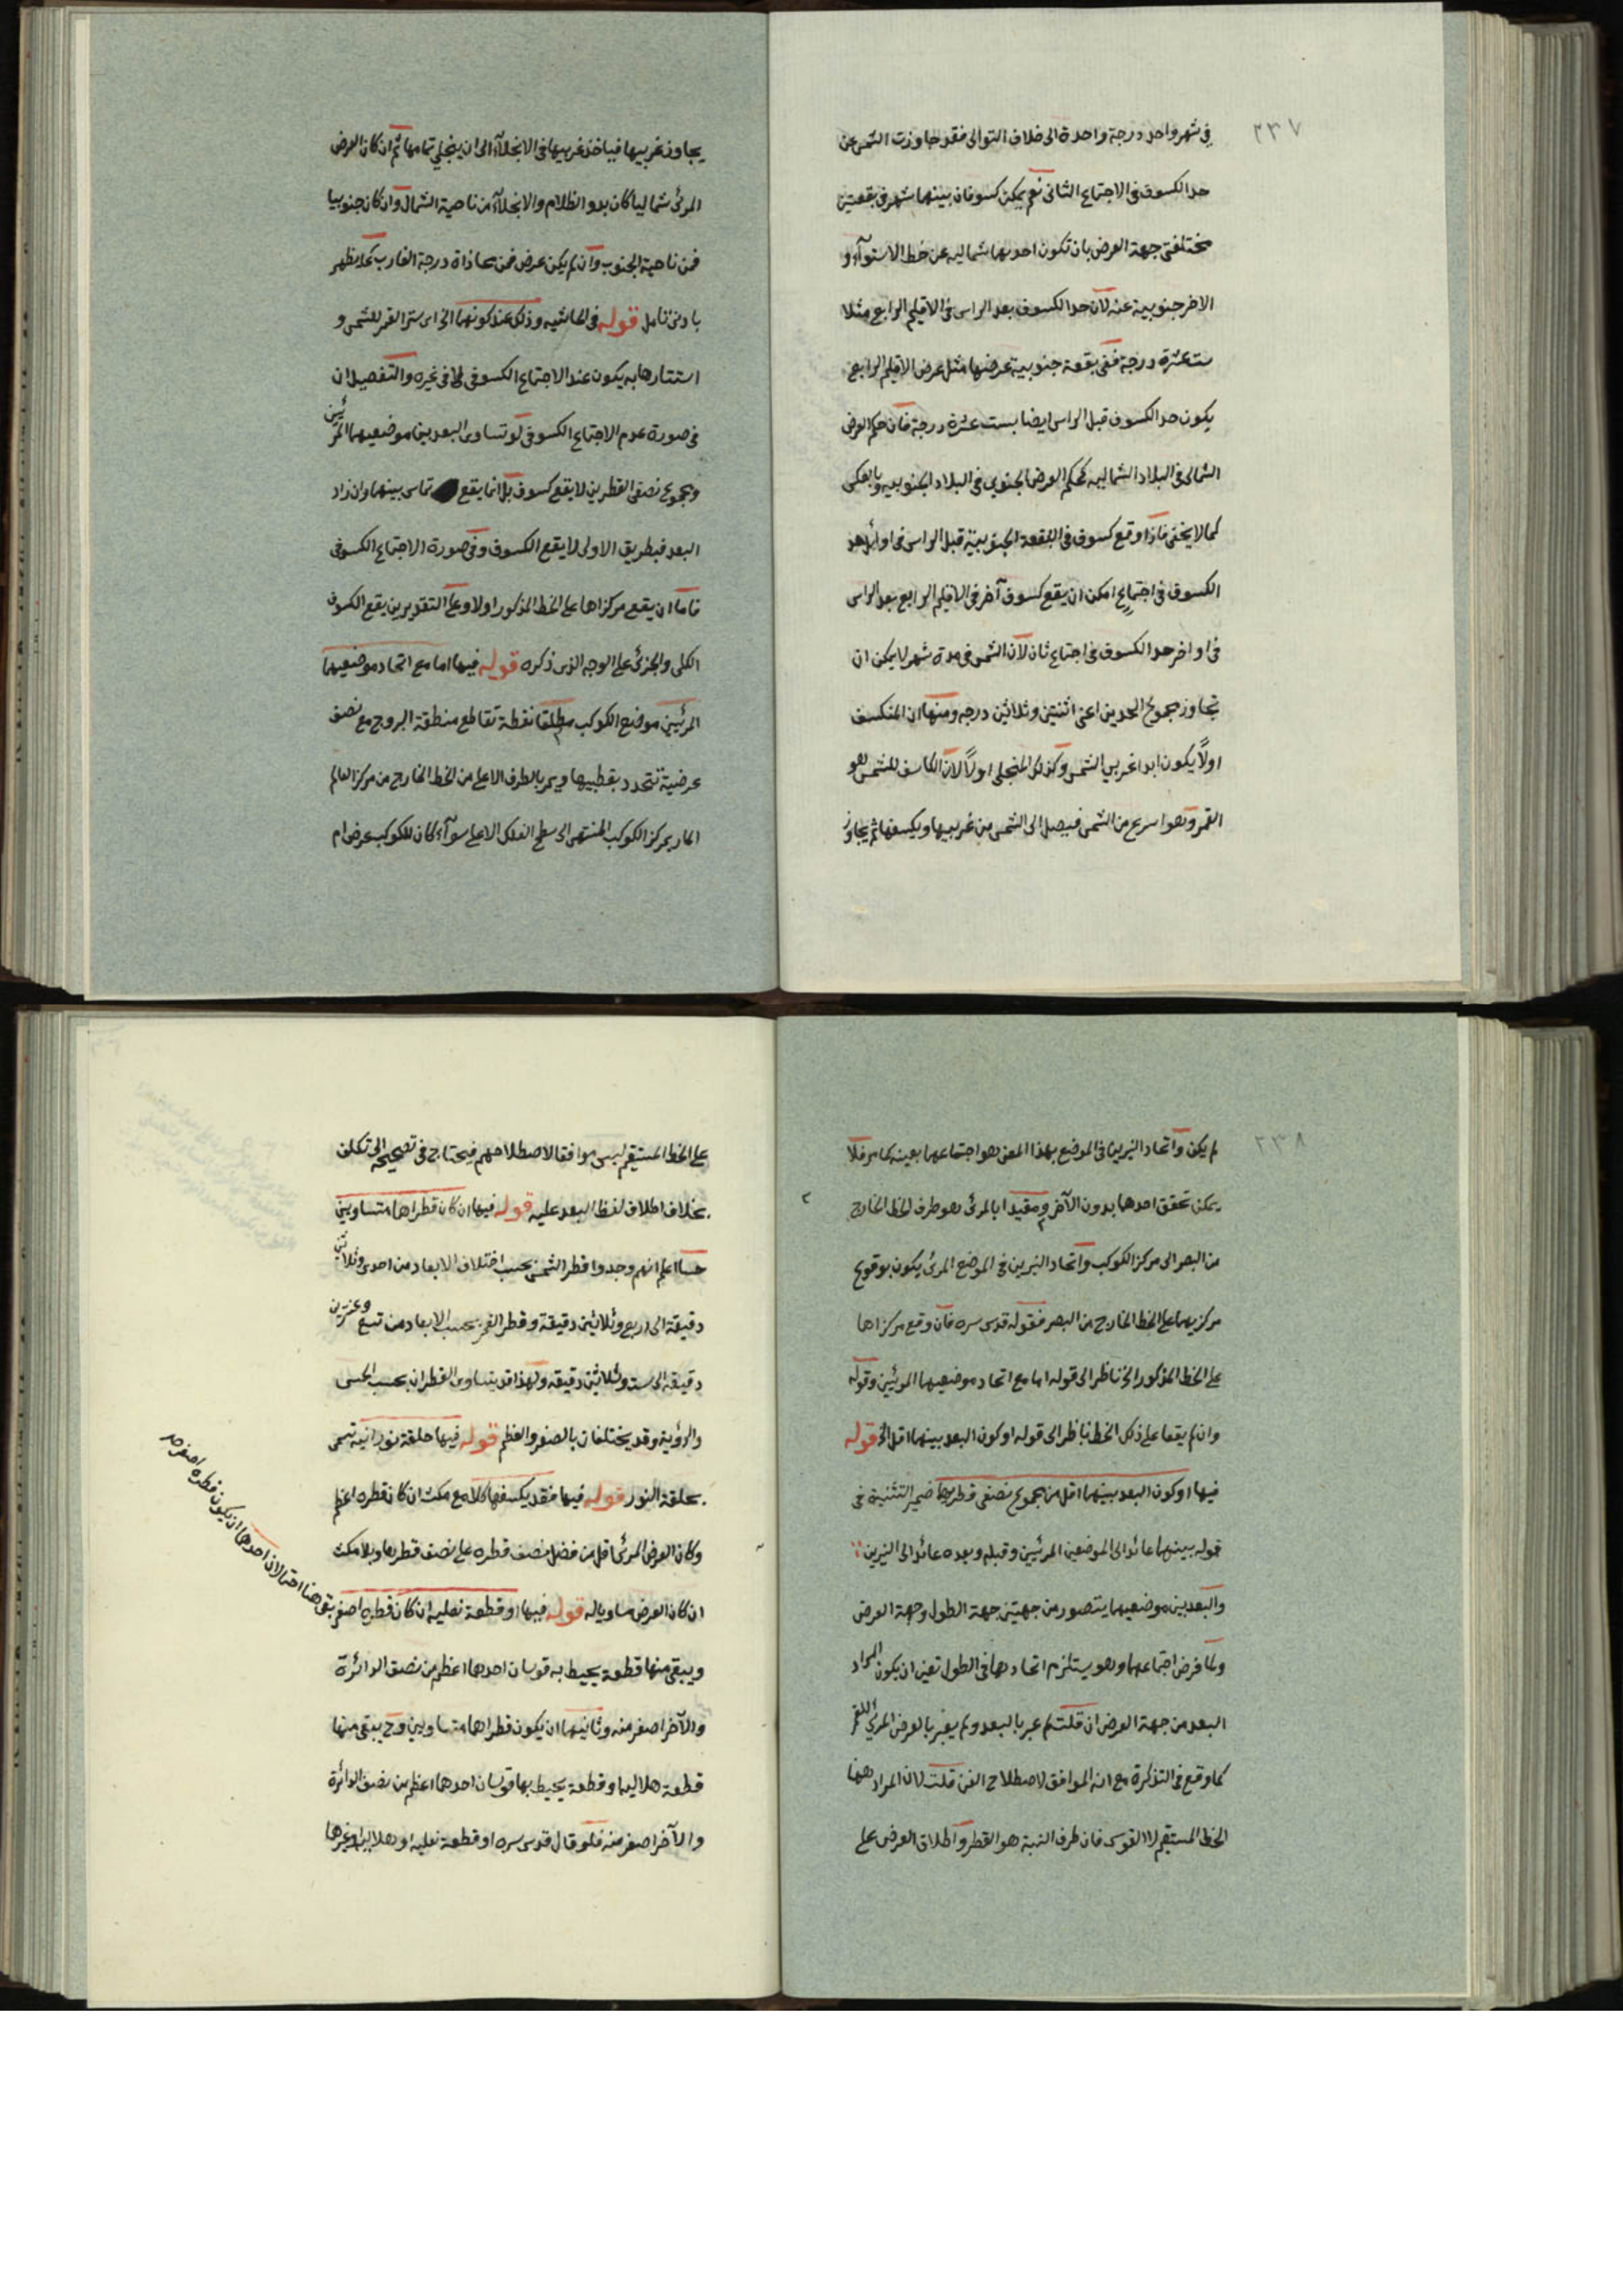 ٢٣٧
في شهر واحد درجة واحدة الى خلاف التوالى فقد جاوزت الشمس عن
حد الكسوف في الاجتماع الثانى نعم يمكن كسوفان بينهما شهر في بقعتين
مختلفتى جهة العرض بان تكون احديهما شماليه عن خط الاستوآء و
الاخر جنوبية عنه لان حد الكسوف بعد الراس في الاقليم الرابع مثلا
ست عشرة درجة ففى بقعة جنوبية عرضها مثل عرض الاقليم الرابع
يكون حد الكسوف قبل الراس ايضا بست عشرة درجة فان حكم العرض
الشمالى في البلاد الشماليه كحكم العرض الجنوبى في البلاد الجنوبيه وبالعكس
كما لا يخفى فاذا وقع كسوف في البقعة الجنوبية قبل الراس في اوائل حد
الكسوف في اجتماع امكن ان يقع كسوف آخر في الاقليم الرابع بعد الراس
في اواخر حد الكسوف في اجتماع ثان لان الشمس في مدة شهر لا يمكن ان
تجاوز مجموع الحدين اعنى اثنتين وثلاثين درجه ومنها ان المنكسف
اولاً يكون ابدا غربي الشمس وكذلك المنجلى اولاً لان الكاسف للشمس هو
القمر وهو اسرع من الشمس فيصل الى الشمس من غربيها ويكسفها ثم يجاوز
يجاوز غربيها فياخذ غربيها في الانجلآء الى ان ينجلي تمامها ثم ان كان العرض
المرئى شماليا كان بدو الظلام والانجلآء من ناحية الشمال وان كان جنوبيا
فمن ناحية الجنوب وان لم يكن عرض فمن محاذاة درجة الغارب كما يظهر
بادنى تامل قوله في الحاشيه وذلك عند كونهما الخ اى ستر القمر للشمس و
استتارها به يكون عند الاجتماع الكسوفى لا في غيره والتفصيل ان
في صورة عدم الاجتماع الكسوفى لو تساوى البعد بين موضعيهما المرئيين
ومجموع نصفى القطرين لا يقع كسوف بل انما يقع تماس بينهما وان زاد
البعد فبطريق الاولى لا يقع الكسوف وفي صورة الاجتماع الكسوفى
فاما ان يقع مركزاها على الخط المذكور اولا وعلى التقديرين يقع الكسوف
الكلى والجزئى على الوجه الذى ذكره قوله فيها اما مع اتحاد موضعيهما
المرئيين موضع الكوكب مطلقا نقطة تقاطع منطقة البروج مع نصف
عرضية تتحدد بقطبيها ويمر بالطرف الاعلى من الخط الخارج من مركز العالم
المار بمركز الكوكب المنتهى الى سطح الفلك الاعلى سوآء كان للكوكب عرض ام
٢٣٨
لم يكن واتحاد النيرين في الموضع بهذا المعنى هو اجتماعهما بعينه كما مر فلا
يمكن تحقق احدها بدون الآخر ومقيدا بالمرئى هو طرف الخط الخارج
من البصر الى مركز الكوكب واتحاد النيرين في الموضع المرئى يكون بوقوع
مركزيهما على الخط الخارج من البصر فقوله قدس سره فان وقع مركزاها
على الخط المذكور الخ ناظر الى قوله اما مع اتحاد موضعيهما المرئيين وقوله
وان لم يقعا على ذلك الخط ناظر الى قوله او كون البعد بينهما اقل الخ قوله
فيها او كون البعد بينهما اقل من مجموع نصفى قطريهما ضمير التثنية في
قوله بينهما عائد الى الموضعين المرئيين وقبله وبعده عائد الى النيرين
والبعد بين موضعيهما يتصور من جهتين جهة الطول وجهة العرض
ولما فرض اجتماعهما وهو يستلزم اتحادها في الطول تعين ان يكون المراد
البعد من جهة العرض ان قلت لم عبر بالبعد ولم يعبر بالعرض المرئى للقمر
كما وقع في التذكرة مع انه الموافق لاصطلاح الفن قلت لان المراد ههنا
الخط المستقيم لا القوس فان طرف النسبة هو القطر واطلاق العرض على
على الخط المستقيم ليس موافقا لاصطلاحهم فيحتاج في تصحيحه الى تكلف
بخلاف اطلاق لفظ البعد عليه قوله فيها ان كان قطراها متساويين
حسا اعلم انهم وجدوا قطر الشمس بحسب اختلاف الابعاد من احدى وثلاثين
دقيقة الى اربع وثلاثين دقيقة وقطر القمر بحسب الابعاد من تسع وعشرين
دقيقه الى ست وثلاثين دقيقه ولهذا قد يتساوى القطران بحسب الحس
والرؤية وقد يختلفان بالصغر والعظم قوله فيها حلقة نورانية تسمى
بحلقة النور قوله فيها فقد يكسفها كلا مع مكث ان كان قطره اعظم
وكان العرض المرئى اقل من فضل نصف قطره على نصف قطرها وبلا مكث
ان كان العرض مساويا له قوله فيها او قطعة نعليه ان كان قطره اصغر
بقى هنا احتمالان احدها ان يكون قطره اصغر
ويبقى منها قطعة يحيط به قوسان احدهما اعظم من نصف الدائرة
والآخر اصغر منه وثانيهما ان يكون قطراها متساويين وح يبقى منها
قطعة هلاليه او قطعة يحيط بها قوسان احدهما اعظم من نصف الدائرة
والآخر اصغر منه فلو قال قدس سره او قطعة نعليه او هلاليه او غيرها